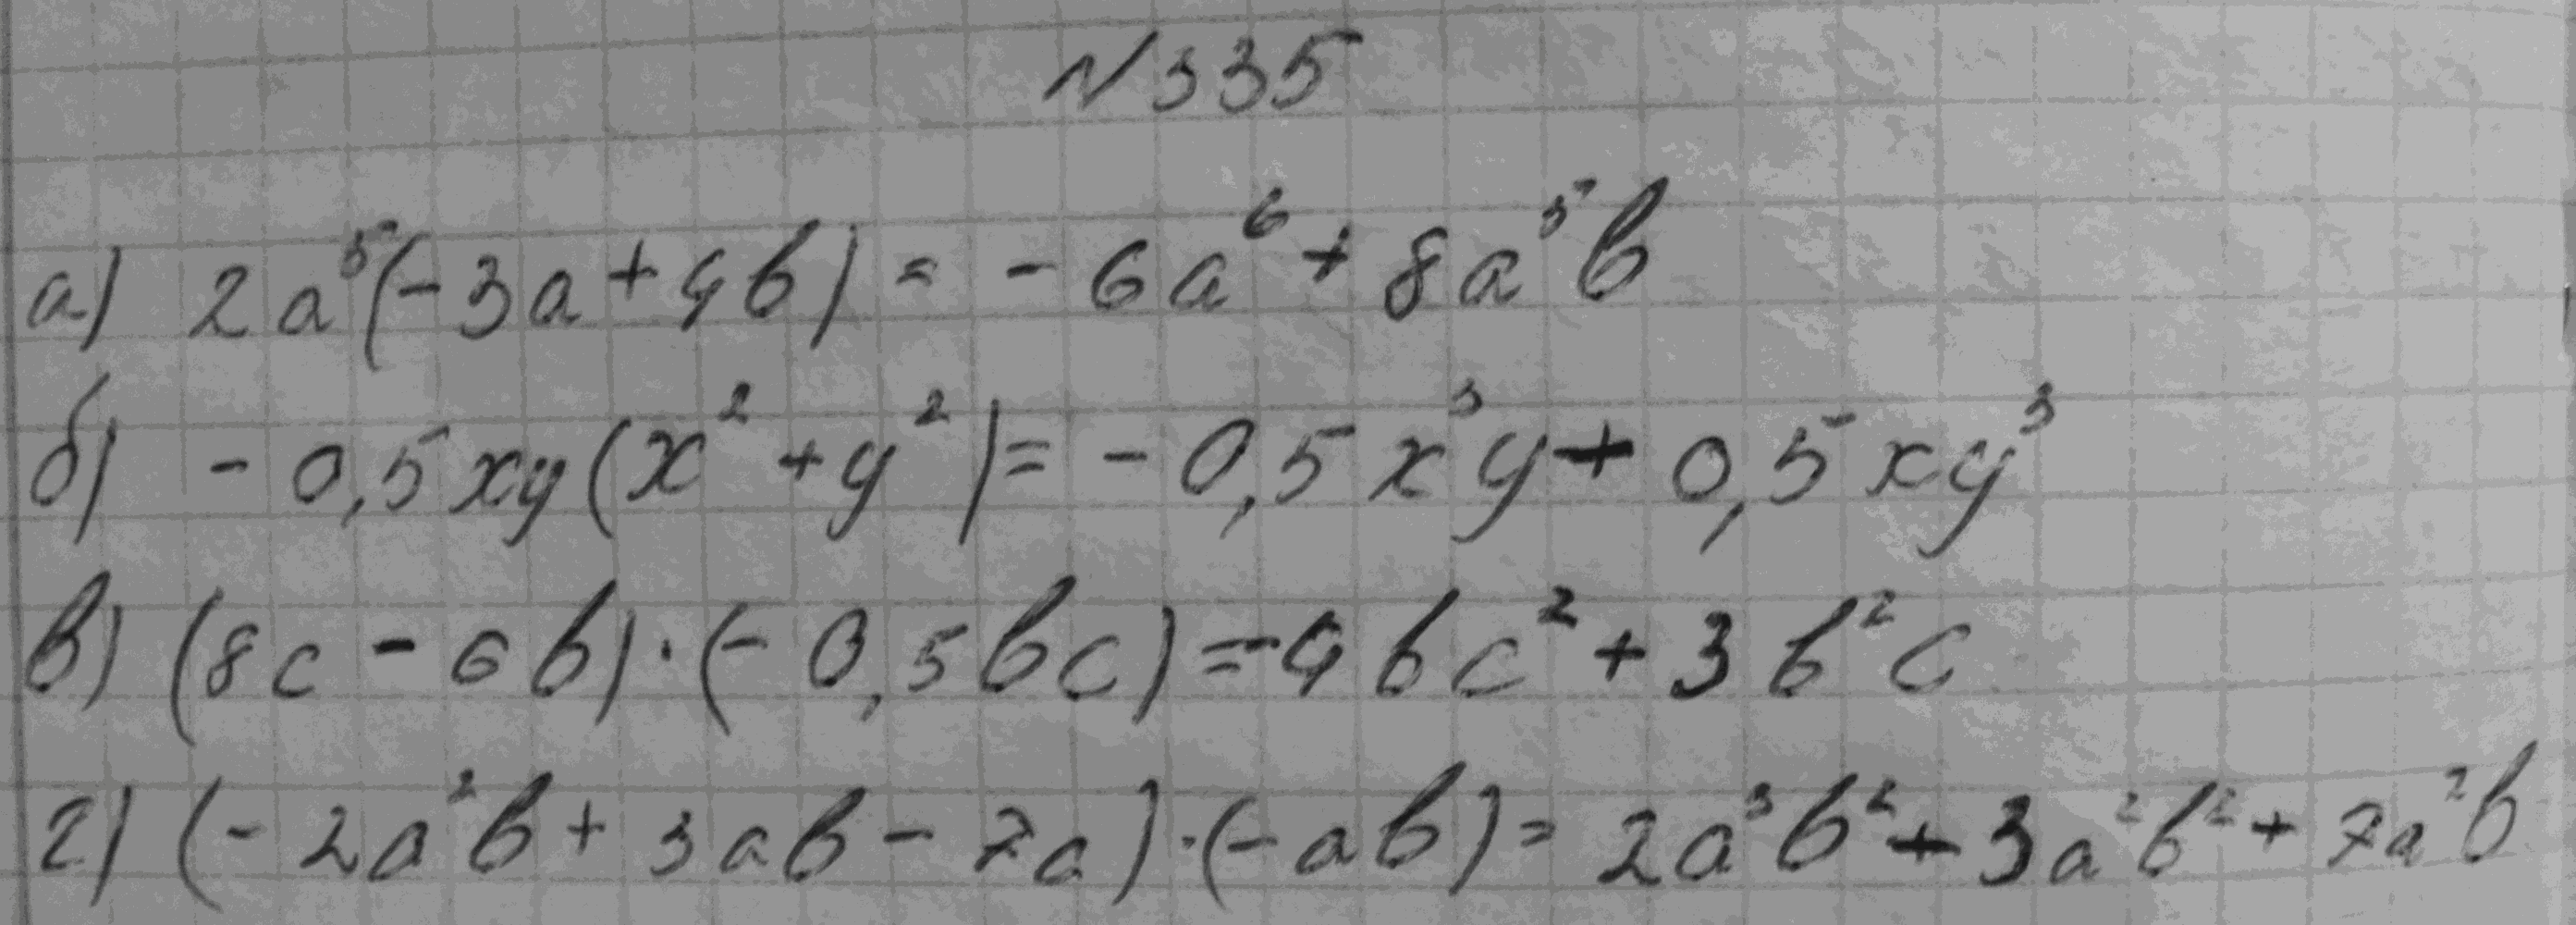 N 335
а) 2a⁵(-3a+4b) = -6a⁶+8a⁵b
б) -0,5xy(x²+y²)=-0,5x³y+0,5xy³
в) (8c-6b)·(-0,5bc)=-4bc²+3b²c
г) (-2a²b+3ab-7a)·(-ab)=2a³b²+3a²b²+7a²b